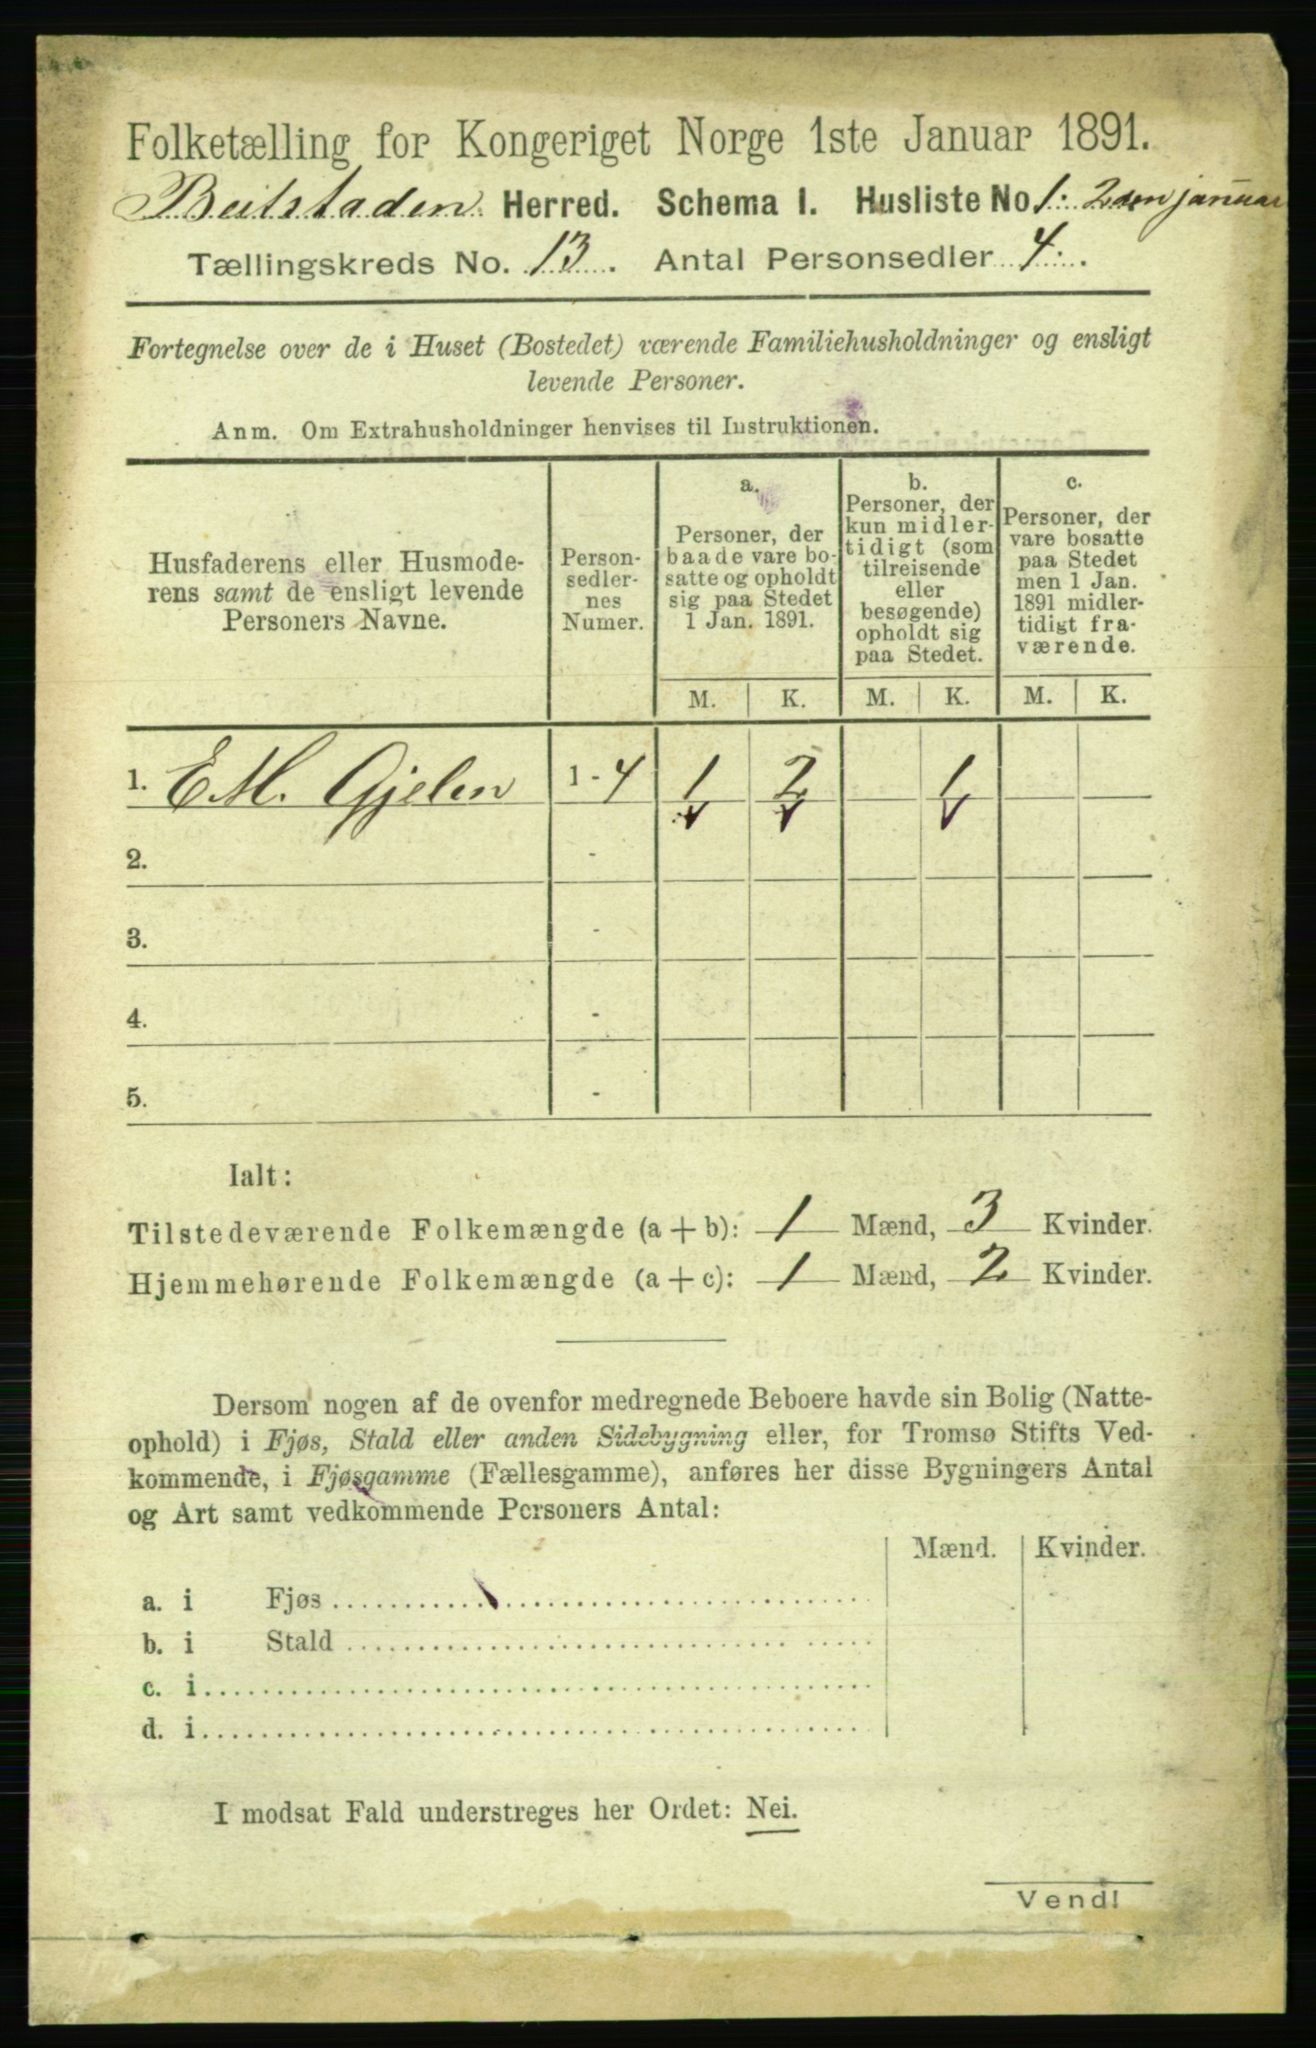 Folketælling for Kongeriget Norge 1ste Januar 1891.
Beitstaden Herred. Schema I. Husliste No 1. 2den januar
Tællingskreds No. 13. Antal Personsedler 4.
Fortegnelse over de i Huset (Bostedet) værende Familiehusholdninger og ensligt
levende Personer.
Anm. Om Extrahusholdninger henvises til Instruktionen.
Husfaderens eller Husmode-
rens samt de ensligt levende
Personers Navne.
Person-
sedler-
nes
Numer.
a.
Personer, der
baade vare bo-
satte og opholdt
sig paa Stedet
1 Jan. 1891.
b.
Personer, der
kun midler-
tidigt (som
tilreisende
eller
besøgende)
opholdt sig
paa Stedet.
c.
Personer, der
vare bosatte
paa Stedet
men 1 Jan.
1891 midler-
tidigt fra-
værende.
M. K. M. K. M. K.
1. E M. Gjelen 1 - 4 1 2 1
2. -
3. -
4. -
5. -
Ialt:
Tilstedeværende Folkemængde (a + b): 1 Mænd, 3 Kvinder.
Hjemmehørende Folkemængde (a + c): 1 Mænd, 2 Kvinder.
Dersom nogen af de ovenfor medregnede Beboere havde sin Bolig (Natte-
ophold) i Fjøs, Stald eller anden Sidebygning eller, for Tromsø Stifts Ved-
kommende, i Fjøsgamme (Fællesgamme), anføres her disse Bygningers Antal
og Art samt vedkommende Personers Antal:
Mænd. Kvinder.
a. i Fjøs
b. i Stald
c. i
d. i
I modsat Fald understreges her Ordet: Nei.
Vend!